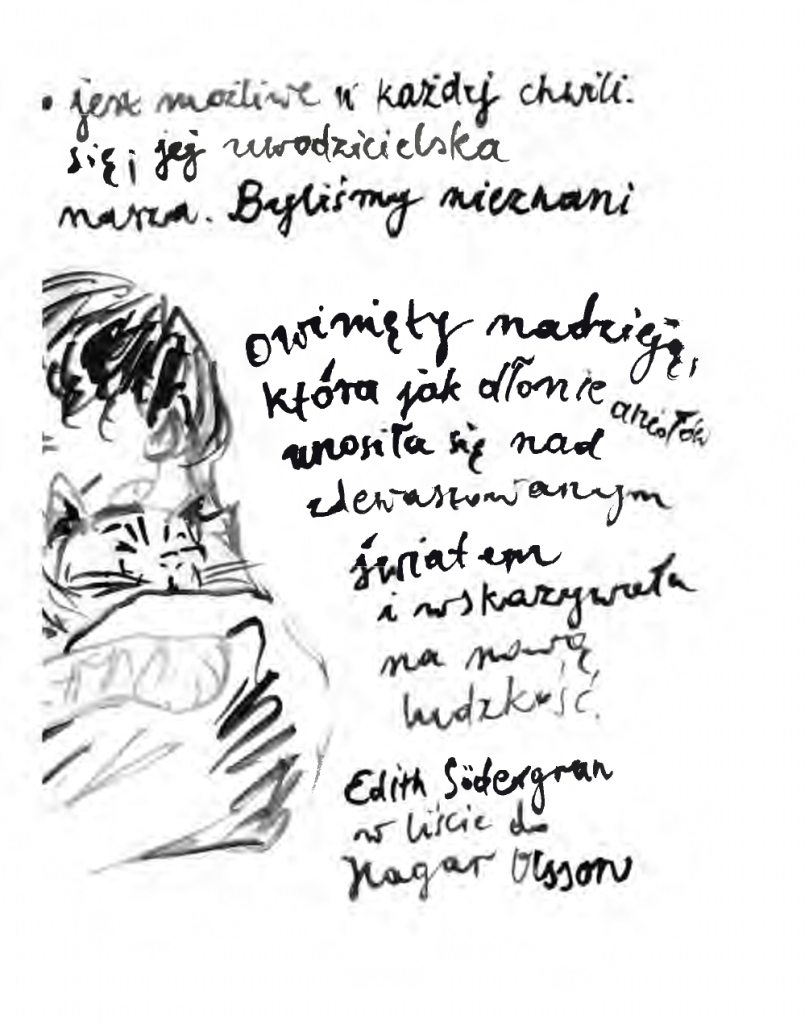 • jest możliwe w każdej chwili.
się i jej uwodzicielska
nasza. Byliśmy nieznani
Owinięty nadzieją,
która jak dłonie aniołów
unosiła się nad
zdewastowanym
światem
i wskazywała
na nową
ludzkość.
Edith Södergran
w liście do
Hagar Olsson